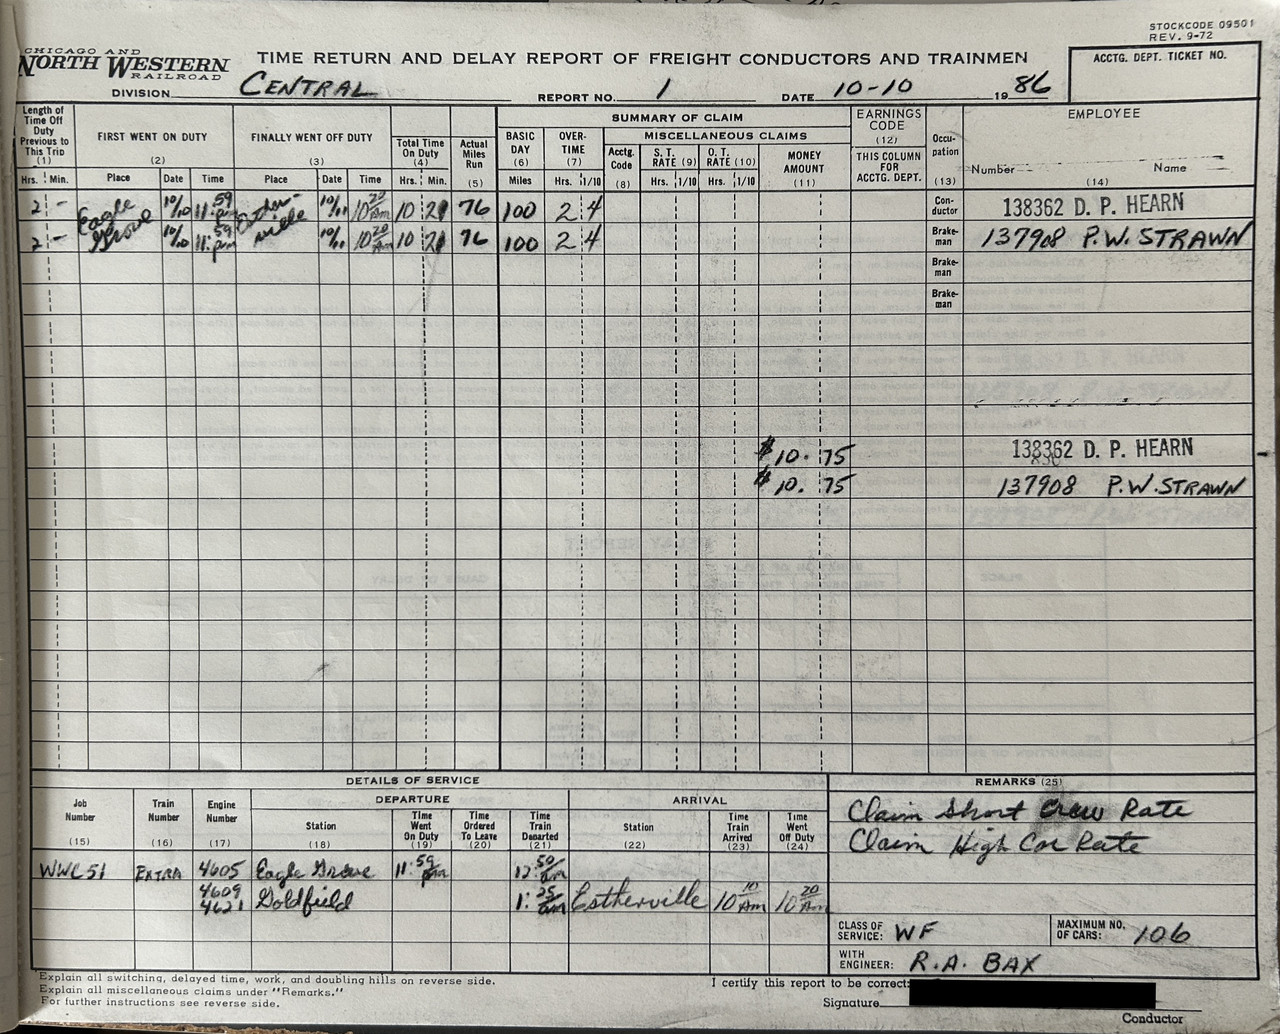 STOCKCODE 09501
REV. 9-72
CHICAGO AND
NORTH WESTERN
RAILROAD
TIME RETURN AND DELAY REPORT OF FREIGHT CONDUCTORS AND TRAINMEN
ACCTG. DEPT. TICKET NO.
DIVISION CENTRAL REPORT NO. 1 DATE 10-10 1986
Length of Time Off Duty Previous to This Trip (1)
FIRST WENT ON DUTY (2)
FINALLY WENT OFF DUTY (3)
Total Time On Duty (4)
Actual Miles Run (5)
SUMMARY OF CLAIM
BASIC DAY (6)
OVER-TIME (7)
MISCELLANEOUS CLAIMS
Acctg. Code (8)
S. T. RATE (9)
O. T. RATE (10)
MONEY AMOUNT (11)
EARNINGS CODE (12) THIS COLUMN FOR ACCTG. DEPT.
Occu-pation (13)
EMPLOYEE
Number (14) Name
Hrs. Min. Place Date Time Place Date Time Hrs. Min. Miles Hrs. 1/10 Hrs. 1/10 Hrs. 1/10
2 - Eagle Grove 10/10 11:59 pm Esther-ville 10/11 10 20 Am 10 21 76 100 2 4 Con-ductor 138362 D. P. HEARN
2 - 10/10 11:59 pm 10/11 10 20 Am 10 21 76 100 2 4 Brake-man 137908 P.W. STRAWN
Brake-man
Brake-man
$10.75 138362 D. P. HEARN
$10.75 137908 P.W. STRAWN
DETAILS OF SERVICE
REMARKS (25)
Job Number (15)
Train Number (16)
Engine Number (17)
DEPARTURE
Station (18)
Time Went On Duty (19)
Time Ordered To Leave (20)
Time Train Departed (21)
ARRIVAL
Station (22)
Time Train Arrived (23)
Time Went Off Duty (24)
Claim Short Crew Rate
Claim High Car Rate
WWC51 EXTRA 4605 Eagle Grove 11:59 pm 12:50 am
4609
4621 Goldfield 1:25 am Estherville 10 10 Am 10 20 Am
CLASS OF SERVICE: WF MAXIMUM NO. OF CARS: 106
WITH ENGINEER: R.A. BAX
Explain all switching, delayed time, work, and doubling hills on reverse side.
Explain all miscellaneous claims under "Remarks."
For further instructions see reverse side.
I certify this report to be correct:
Signature
Conductor